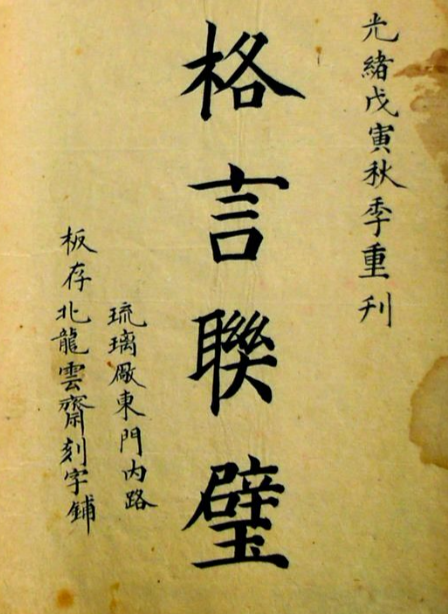 光緒戊寅秋季重刋
格言聯璧
琉璃厰東門内路
板存北龍雲齋刻字鋪